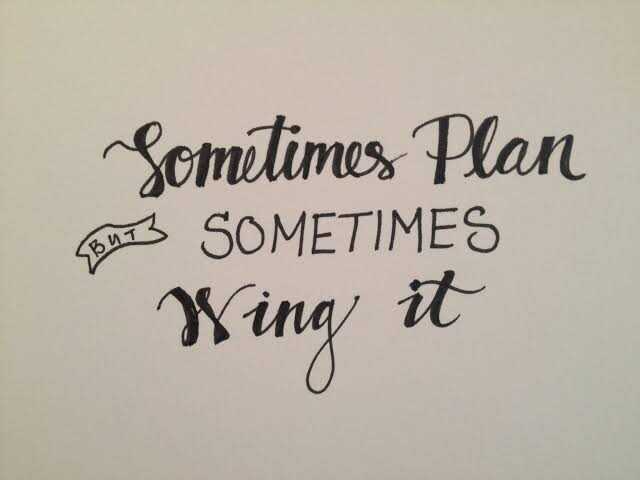 Sometimes Plan
BUT SOMETIMES
Wing it